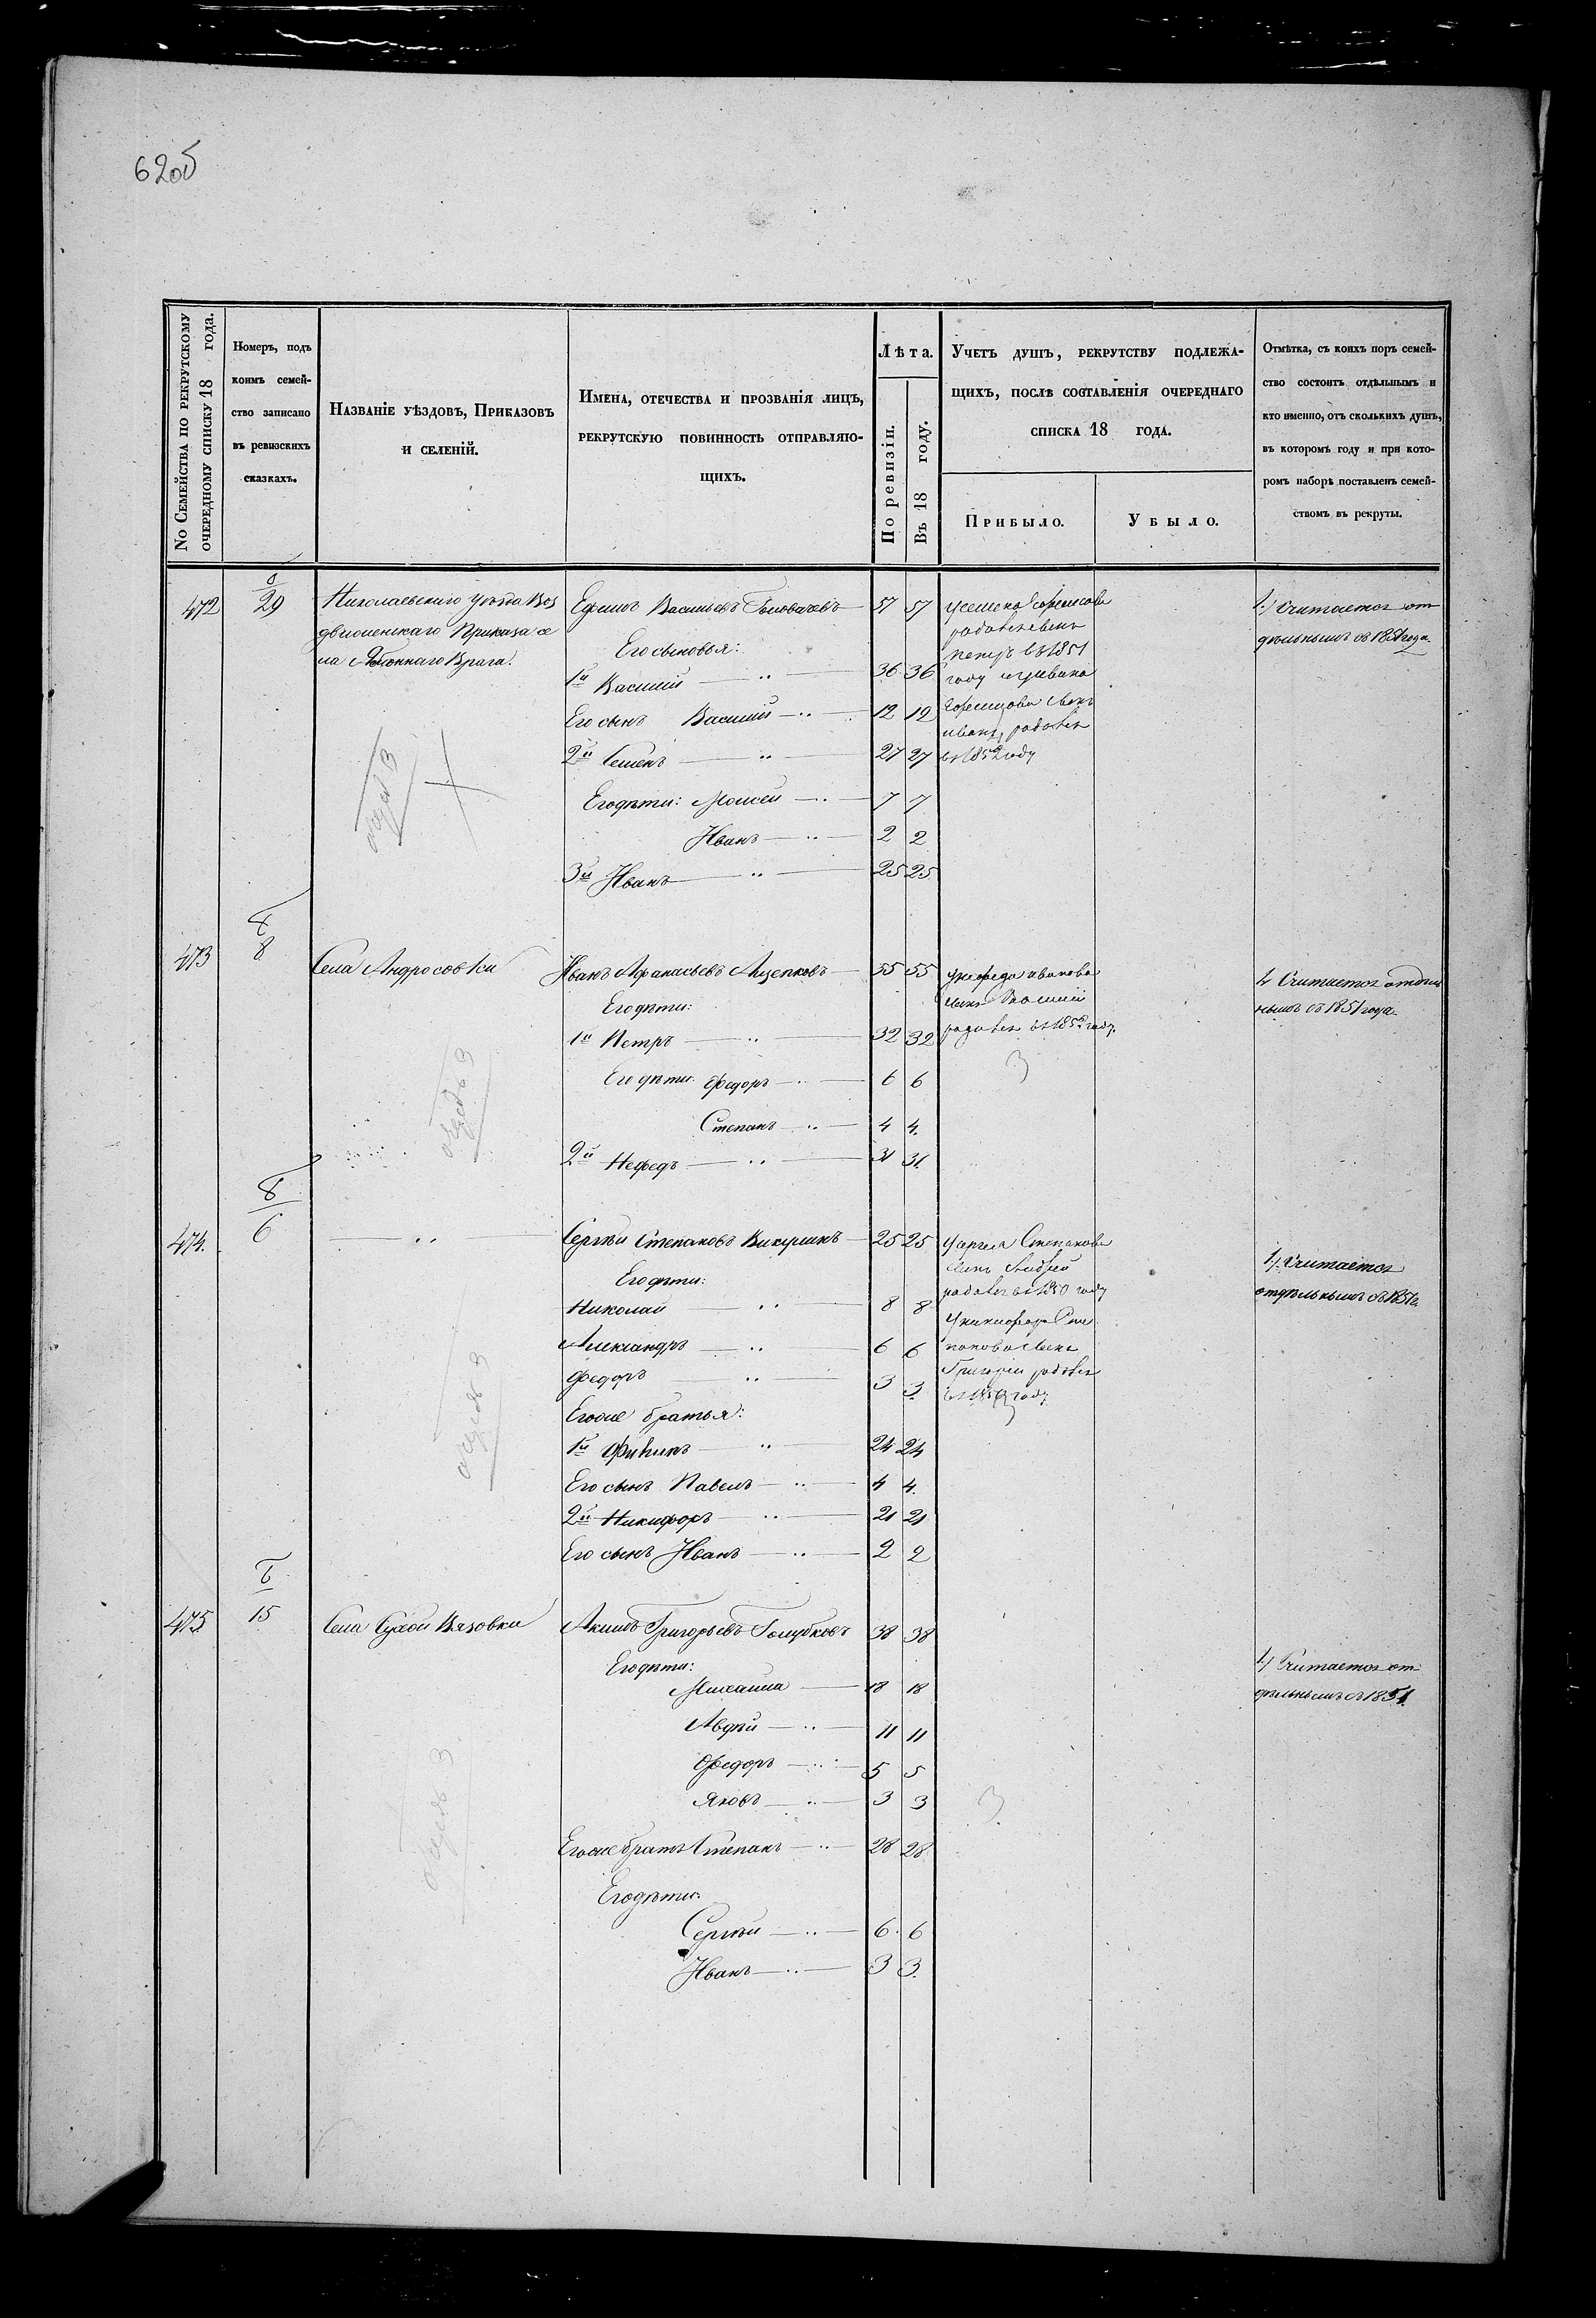 62об
No Семейства по рекрутскому
очередному списку 18 года.
Номеръ, подъ
коимъ семей-
ство записано
въ ревизскихъ
сказкахъ.
Названіе уѣздовъ, Приказовъ
и селеній.
Имена, отечества и прозванія лицъ,
рекрутскую повинность отправляю-
щихъ.
Лѣта.
По ревизіи.
Въ 18 году.
Учетъ душъ, рекрутству подлежа-
щихъ, послѣ составленія очереднаго
списка 18 года.
Прибыло.
Убыло.
Отмѣтка, съ коихъ поръ семей-
ство состоитъ отдѣльнымъ и
кто именно, отъ сколькихъ душъ,
въ которомъ году и при кото-
ромъ наборѣ поставленъ семей-
ствомъ въ рекруты.
472
29
Николаевскаго уѣзда Воз
движенскаго Приказа се
ла Врага.
Ефимъ Васильевъ Головачевъ 57 57
Его сыновья:
1й Василій 36 36
Его сынъ Василій 12 12
2й Семенъ 27 27
Его дѣти: Моисей 7 7
Иванъ 2 2
3й Иванъ 25 25
Усемена Ефимова
родился сынъ
Петръ в 1851
году и уивана
Ефимова сынъ
иванъ родился
в 1852 году
1) Считается от
дѣльнымъ съ 1851 года.
473
8
Села Андросовки
Иванъ Афанасьевъ Лизенковъ 55 55
Его дѣти:
1й Петръ 32 32
Его дѣти: Федоръ 6 6
Степанъ 4 4.
2й Нефедъ 31 31.
Унефеда иванова
сынъ Василий
родился в 1852 году.
3
1. Считается отдѣль
нымъ съ 1851 года.
474.
8
6
Сергѣй Степановъ Викулинъ 25 25
Его дѣти:
Николай 8 8
Александръ 6 6
Федоръ 3 3.
Егоже братья:
1й 24 24
Его сынъ Павелъ 4 4.
2й Никифоръ 21 21
Его сынъ Иванъ 2 2
Усергея Степанова
сынъ Андрей
родился в 1850 году
Уникифора Сте
панова сынъ
Григорій родился
в 1852 году
1). Считается
отдѣльнымъ съ 1851 г.
475
15
Села Сухой Вязовки
Акимъ Григорьевъ Голубковъ 38 38
Его дѣти:
Михайла 18 18
Авдѣй 11 11
Федоръ 5 5
Яковъ 3 3
Егоже братъ Степанъ 28 28
Его дѣти:
Сергѣй 6. 6
Иванъ 3 3.
3
1) Считается от
дѣльнымъ съ 1851.